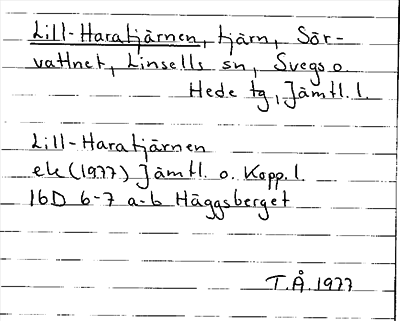 Lill-Haratjärnen, tjärn, Sör-
vattnet, Linsells sn, Svegs o.
Hede tg, Jämtl. l.
Lill-Haratjärnen
ek (1977) Jämtl. o. Kopp. l.
16D 6-7 a-b Häggsberget
T.Å. 1977